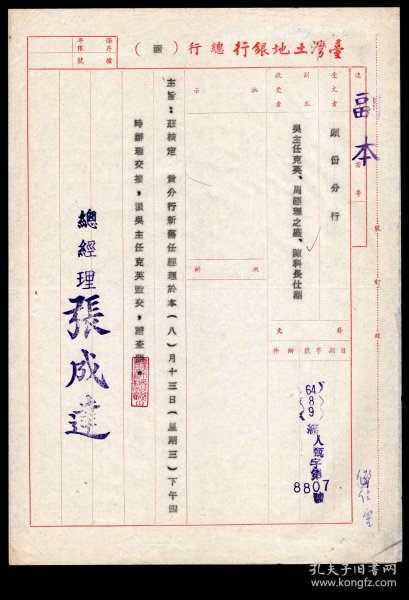 臺灣土地銀行總行（函）
副本
速別
密等
受文者
頭份分行
副本
收受者
吳主任克英、周經理之鑑、陳科長仕潮
批示
擬辦
發文
日期字號附件
64 8 9
總人甄字第
8807
號
主旨：茲核定　貴分行新舊任經理於本（八）月十三日（星期三）下午四
時辦理交接，派吳主任克英監交，請查照。
總經理 張成達
保存檔
年限號
裝
訂
線
孔夫子旧书网
www.kongfz.com